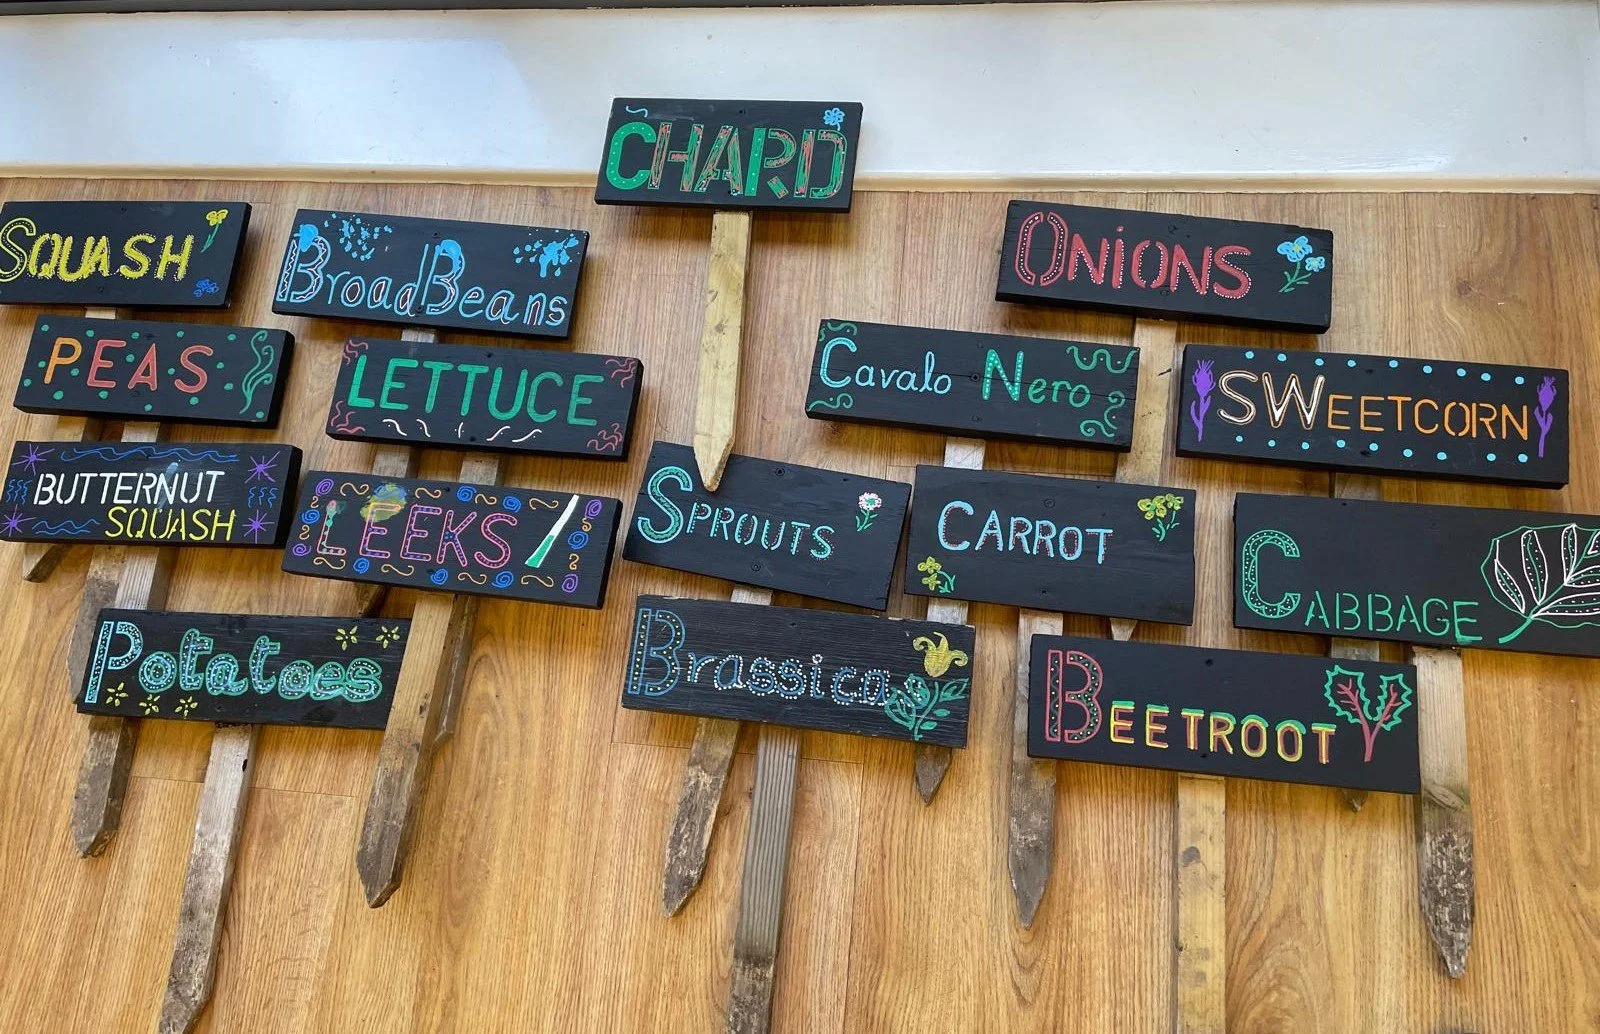 CHARD
SQUASH
BroadBeans
ONiONS
PEAS
LETTUCE
Cavalo Nero
SWEETCORN
BUTTERNUT
SQUASH
LEEKS
SPROUTS
CARROT
CABBAGE
Potatoes
Brassica
BEETROOT